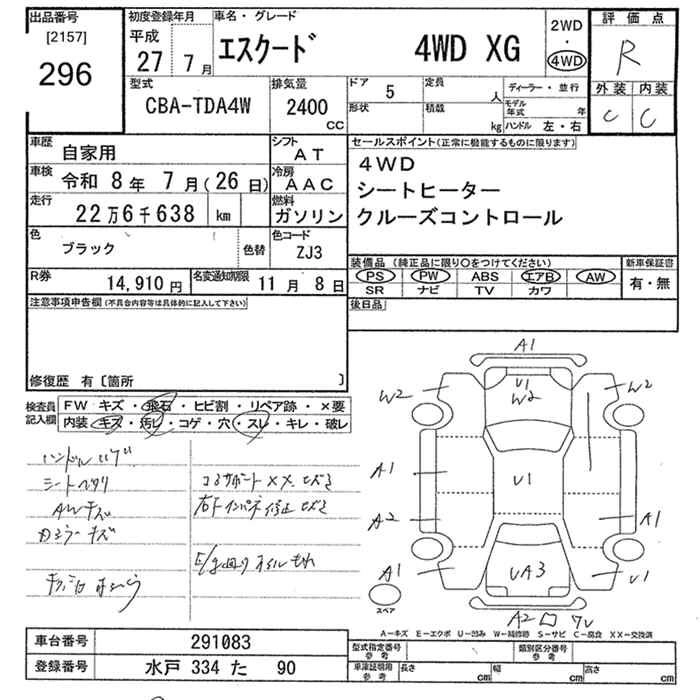 出品番号
[2157]
296
初度登録年月
平成
27 7月
車名・グレード
エスクード 4WD XG
2WD
・
4WD
評価点
R
外装 内装
C C
型式
CBA-TDA4W
排気量
2400
CC
ドア 5
定員 人
形状
積載 kg
ディーラー・並行
モデル年式 年
ハンドル 左・右
車歴 自家用
シフト AT
車検 令和 8年 7月(26日)
冷房 AAC
走行 22万6千638 km
燃料 ガソリン
色 ブラック 色替
色コード ZJ3
R券 14,910円
名変通知期限 11月 8日
セールスポイント(正常に機能するものに限ります)
4WD
シートヒーター
クルーズコントロール
装備品 (純正品に限り○をつけてください)
PS PW ABS エアB AW
SR ナビ TV カワ
新車保証書
有・無
後日品
注意事項申告欄(不具合内容等は具体的に記入して下さい)
修復歴 有〔箇所 〕
検査員記入欄
FW キズ・飛石・ヒビ割・リペア跡・×要
内装・キズ・汚レ・コゲ・穴・スレ・キレ・破レ
シートヘタリ
AWキズ
コアサポートXX、ヒズミ
右インパネ修正ヒズミ
E/g廻りオイルもれ
A1
U1
W2
W2
W2
A1
U1
A2
A1
A1
U1
UA3
A2
スペア
A−キズ E−エクボ U−凹み W−補修跡 S−サビ C−腐食 XX−交換済
車台番号 291083
登録番号 水戸 334 た 90
型式指定番号 参考
類別区分番号 参考
車庫証明用 参考
長さ cm
幅 cm
高さ cm